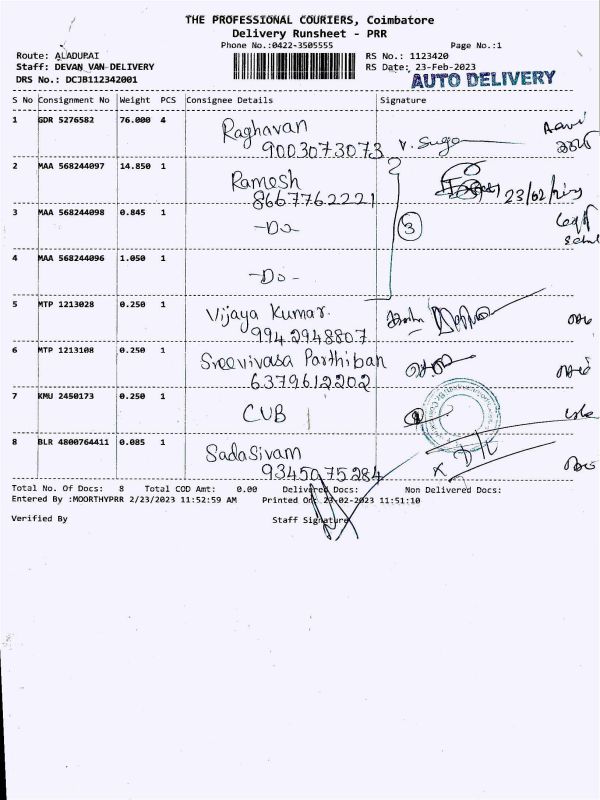 THE PROFESSIONAL COURIERS, Coimbatore
Delivery Runsheet - PRR
Phone No.:0422-3505555 Page No.:1
Route: ALADURAI RS No.: 1123420
Staff: DEVAN VAN-DELIVERY RS Date: 23-Feb-2023
DRS No.: DCJB112342001 AUTO DELIVERY
S No Consignment No Weight PCS Consignee Details Signature
1 GDR 5276582 76.000 4 Raghavan
9003073073 V. Suga
2 MAA 568244097 14.850 1 Ramesh
8667762221 23/02/
3 MAA 568244098 0.845 1 -Do- 3
4 MAA 568244096 1.050 1 -Do-
5 MTP 1213028 0.250 1 Vijaya Kumar.
9942948807
6 MTP 1213108 0.250 1 Sreevivasa Parthiban
6379612202
7 KMU 2450173 0.250 1 CUB
8 BLR 4800764411 0.085 1 Sadasivam
9345075284
Total No. Of Docs: 8 Total COD Amt: 0.00 Delivered Docs: Non Delivered Docs:
Entered By :MOORTHYPRR 2/23/2023 11:52:59 AM Printed On: 23-02-2023 11:51:10
Verified By Staff Signature